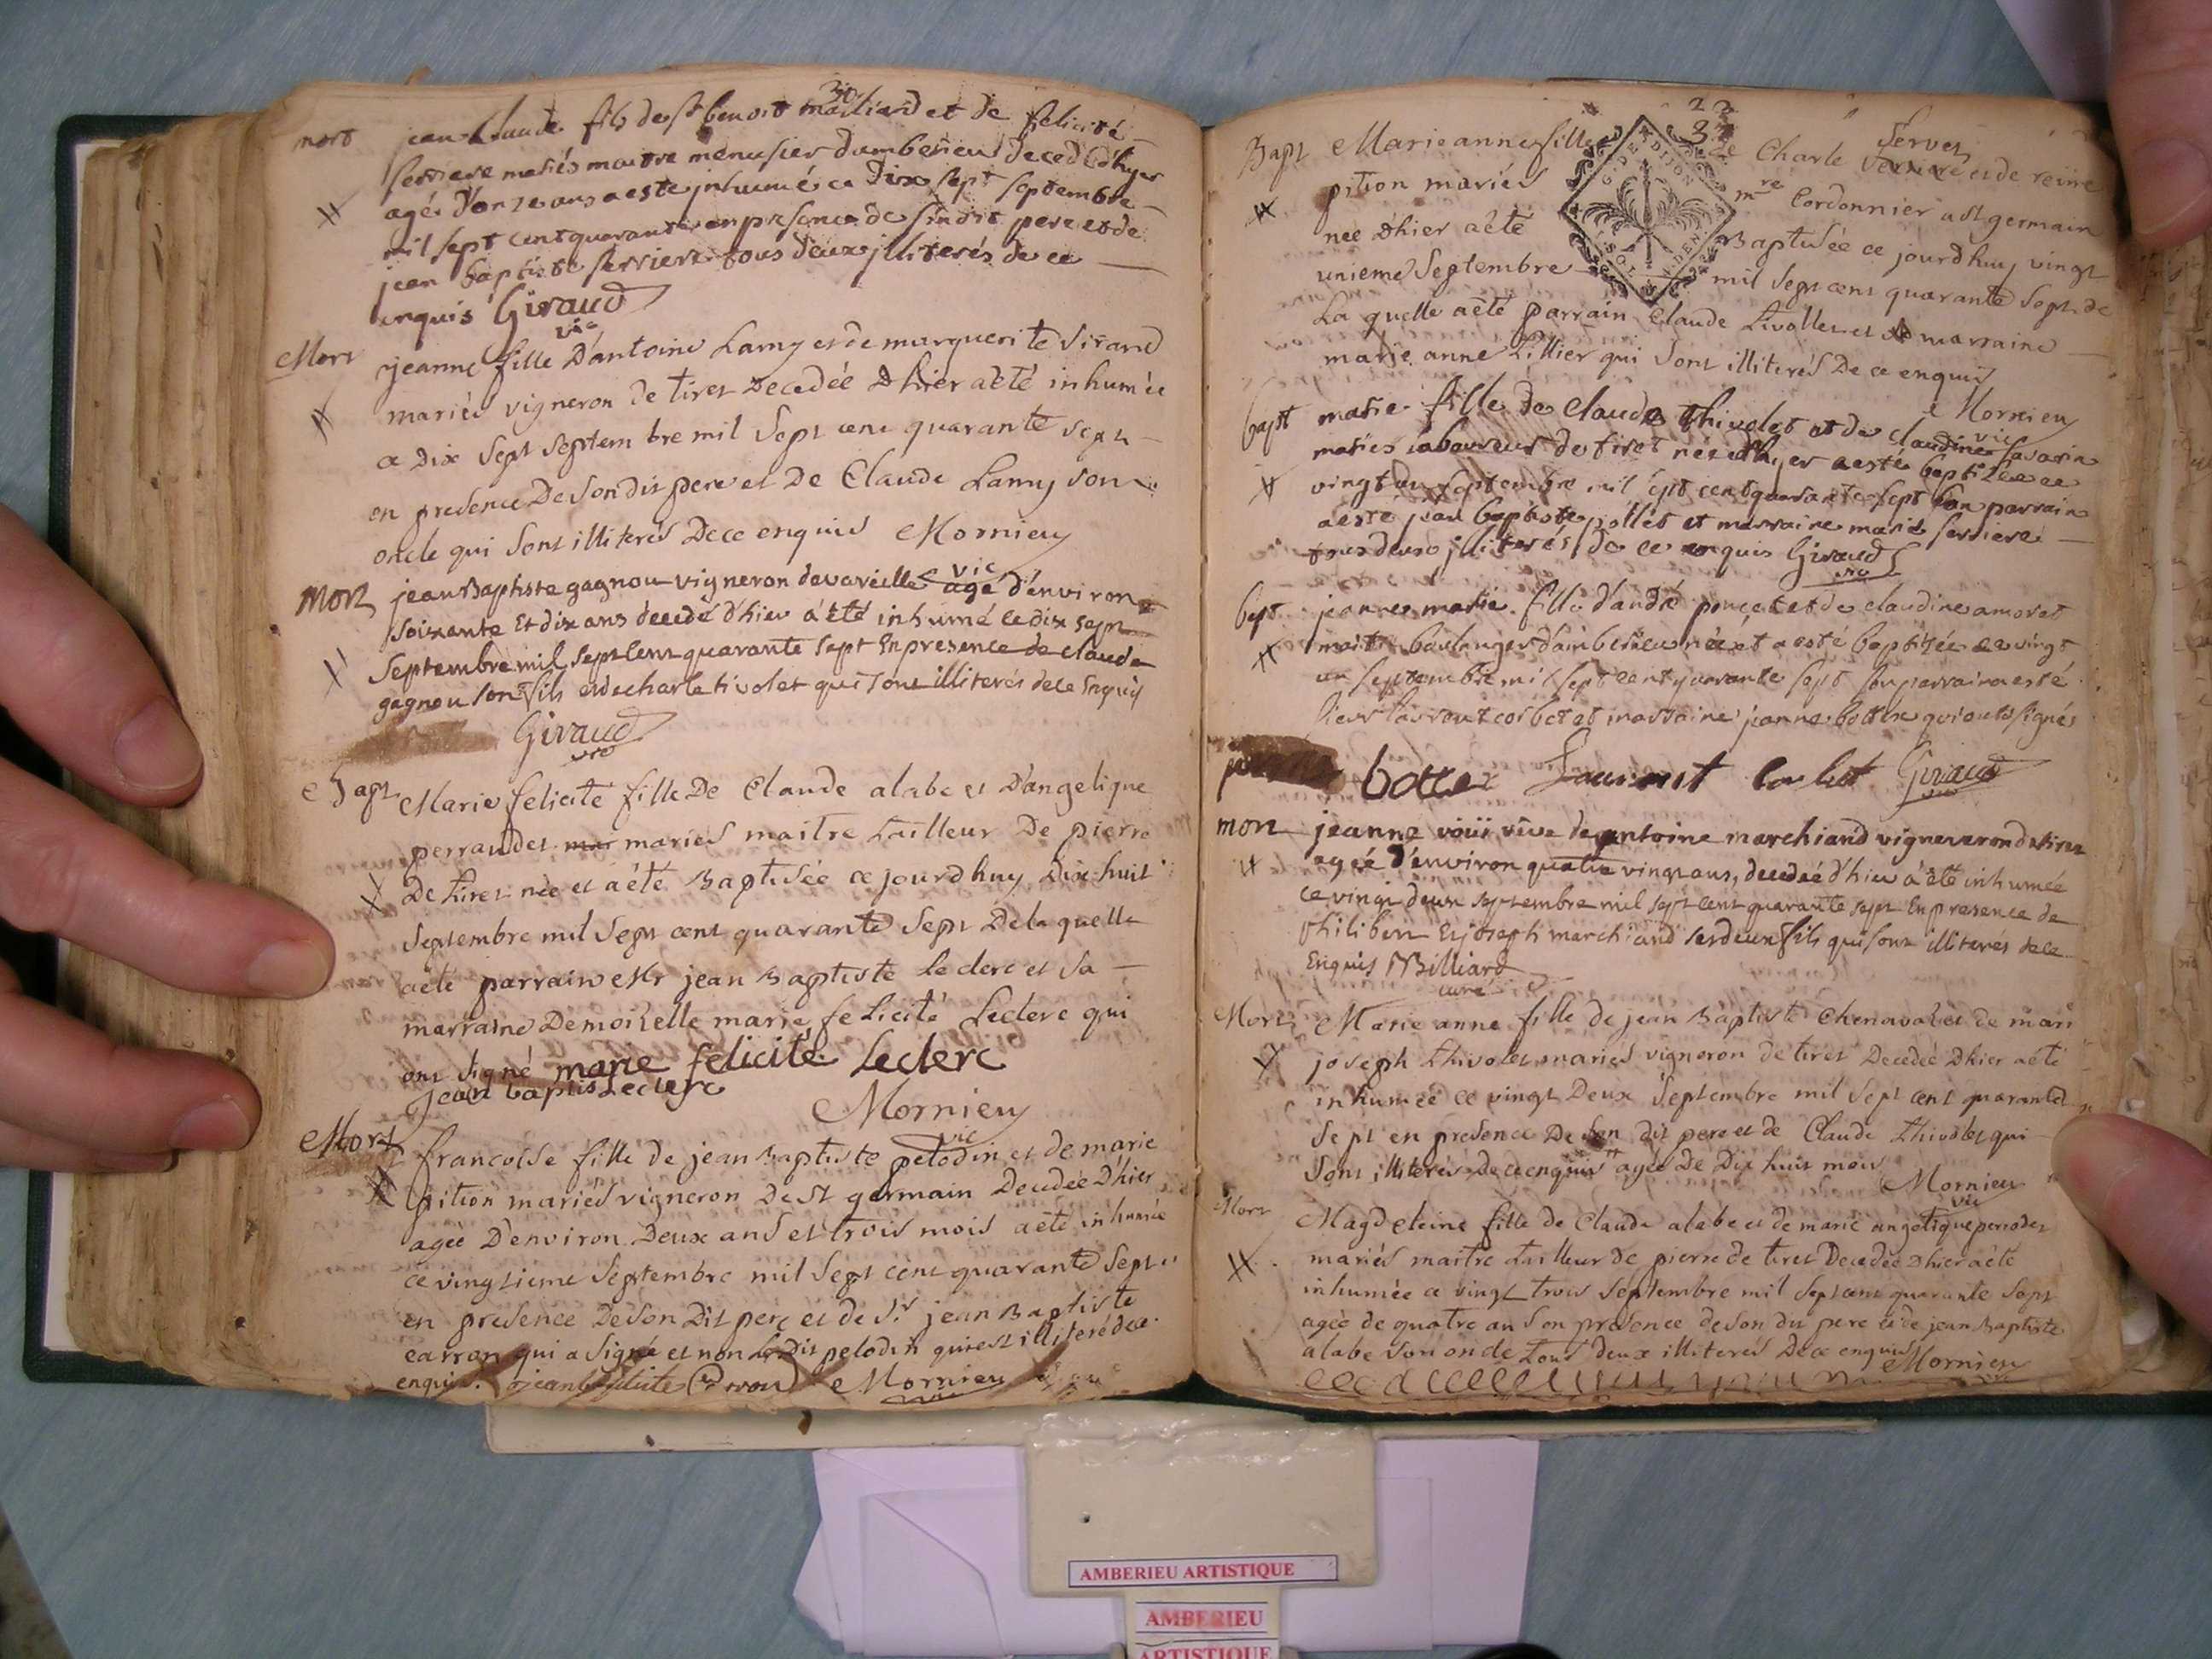 30
mort jean Claude fils de sr benoit mailliard et de felicité
serriere mariés maitre menusier dambérieu decedé dhyer
agé d'onze ans a este inhumé ce dix sept septembre
mil sept cent quarante en presence de sondit pere et de
jean baptiste serriere tous deux illiterés de ce
enquis Giraud
vic
Mort jeanne fille D'antoine Lamy et de marguerite Sirand
mariés vigneron de tiret Decedée Dhier aété inhumée
ce Dix Sept Septembre mil Sept cent quarante Sept
en presence De Son dit pere et De Claude Lamy son
oncle qui Sont illiterés Dece enquis Mornieu
vic
Mort jean Baptiste gagnou vigneron davareille agé d'environ
soixante Et dix ans decedé d'hier á été inhumé ce dix sept
Septembre mil Sept Cent quarante Sept En presence de claude
gagnou son fils et de charle tivolet qui Sont illiterés de ce Enquis
Giraud
vic
Bapt Marie felicité fille De Claude alabe et D'angelique
perraudet mar mariés maitre tailleur De pierre
De tiret née et aété Baptisée ce jourdhuy Dix huit
Septembre mil Sept cent quarante Sept De la quelle
aété parrain Mr jean Baptiste Leclerc et Sa
marraine Demoiselle marie felicité Leclerc qui
ont Signé marie felicite Leclerc
Jean baptis Leclerc
Mornieu
vic
Mort francoise fille de jean Baptiste pelodin et de marie
pition mariés vigneron De St germain Decedée D'hier
agée D'environ Deux ans et trois mois aété inhumée
ce vingtieme Septembre mil Sept cent quarante Sept
en presence De son Dit pere et de Sr. jean Baptiste
carron qui a Signé et non le Dit pelodin qui est illiteré de ce
enquis. jean baptiste Carron Mornieu
22
3
Bapt Marie anne fille de Charle Servet Verriere et de reine
pition mariés mre Cordonnier a St germain
née D'hier aété Baptisée ce jourdhuy vingt
G. DE DIJON
unieme Septembre mil Sept cent quarante Sept de
La quelle aété parrain Claude tivollet et marraine
marie anne tillier qui Sont illiterés De ce enquis
Mornieu
vic
bapt marie fille de claude thivolet et de claudine Savarin
mariés laboureur de tiret née dhyer a esté baptisée ce
vingt un septembre mil sept cent quarante sept son parrain
a esté jean baptiste pollet et marraine marie serriere
tous deux illiterés de ce enquis Giraud
vic
bapt jeanne marie fille d'andré poncet et de claudine amoret
maitre boulanger d'ambérieu née et a esté baptisée ce vingt
un septembre mil sept cent quarante sept son parrain a esté
sieur laurent corbet et marraine jeanne bottex qui ont signés
bottex Laurent Corbet Giraud
mort jeanne voüi vêve de antoine marchiand vigneron de tiret
agée d'environ quatre vingt ans, decedée d'hier á été inhumée
ce vingt deux septembre mil sept cent quarante sept En presence de
Philibert Et joseph marchiand ses deux fils qui sont illiterés de ce
Enquis Billiard
curé
Mort Marie anne fille de jean Baptiste Chenaval et de mari
joseph thivolet mariés vigneron de tiret Decedée Dhier aété
inhumée ce vingt Deux Septembre mil Sept cent quarante
Sept en presence De Son dit pere et de Claude thivolet qui
Sont illiterés De ce enquis agée De Dix huit mois
Mornieu
vic
Mort Magdeleine fille de Claude alabe et de marie angelique perrodet
mariés maitre tailleur de pierre de tiret Decedée Dhier aété
inhumée ce vingt trois Septembre mil Sept cent quarante Sept
agée de quatre ans en presence de son dit pere et de jean Baptiste
alabe Son oncle tous deux illiterés De ce enquis Mornieu
AMBERIEU ARTISTIQUE
AMBERIEU
ARTISTIQUE